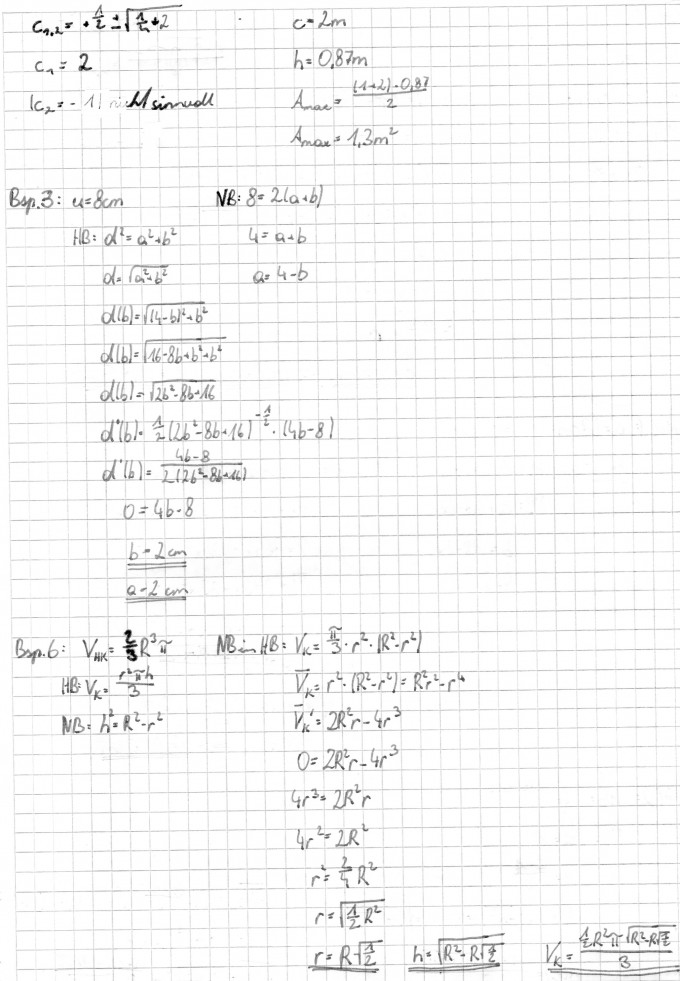 c₁,₂ = + 1/2 ± √(1/4 + 2)
c₁ = 2
(c₂ = - 1) nicht sinnvoll
c = 2m
h = 0,87m
Amax = (1+2)·0,87 / 2
Amax = 1,3m²
Bsp. 3: u = 8cm
HB: d² = a² + b²
d = √(a² + b²)
d(b) = √((4-b)² + b²)
d(b) = √(16 - 8b + b² + b²)
d(b) = √(2b² - 8b + 16)
d'(b) = 1/2 (2b² - 8b + 16)^(-1/2) · (4b - 8)
d'(b) = (4b - 8) / 2(2b² - 8b + 16)
0 = 4b - 8
b = 2 cm
a = 2 cm
NB: 8 = 2(a+b)
4 = a + b
a = 4 - b
Bsp. 6: V_HK = 2/3 R³ π
HB: V_K = r² π h / 3
NB: h² = R² - r²
NB in HB: V_K = π/3 · r² · (R² - r²)
V̅_K = r² · (R² - r²) = R²r² - r⁴
V̅_K' = 2R²r - 4r³
0 = 2R²r - 4r³
4r³ = 2R²r
4r² = 2R²
r² = 2/4 R²
r = √(1/2 R²)
r = R √(1/2)
h = √(R² - R√(1/2))
V_K = 1/2 R² π · √(R² - R√(1/2)) / 3